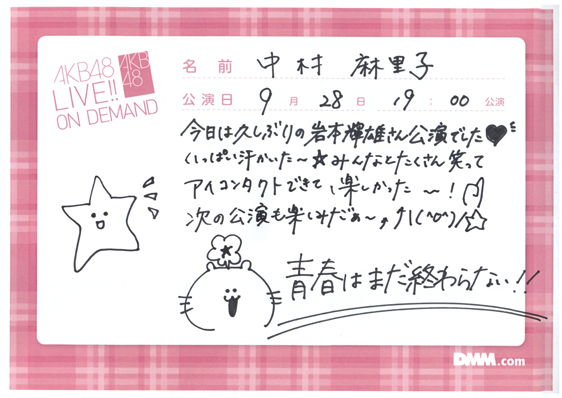 AKB48
LIVE!!
ON DEMAND
AKB
48
名前 中村 麻里子
公演日 9月28日 19:00 公演
今日は久しぶりの岩本輝雄さん公演でした♥
いっぱい汗かいた〜★みんなとたくさん笑って
アイコンタクトできて、楽しかった〜!
次の公演も楽しみだぁ〜♪↑\(^o^)/☆
青春はまだ終わらない!!
DMM.com